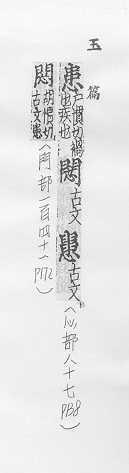 玉篇
患戶慣切禍也疾也 古文 古文(心部八十七 P138)
胡慣切古文患(門部一百四十一 P172)